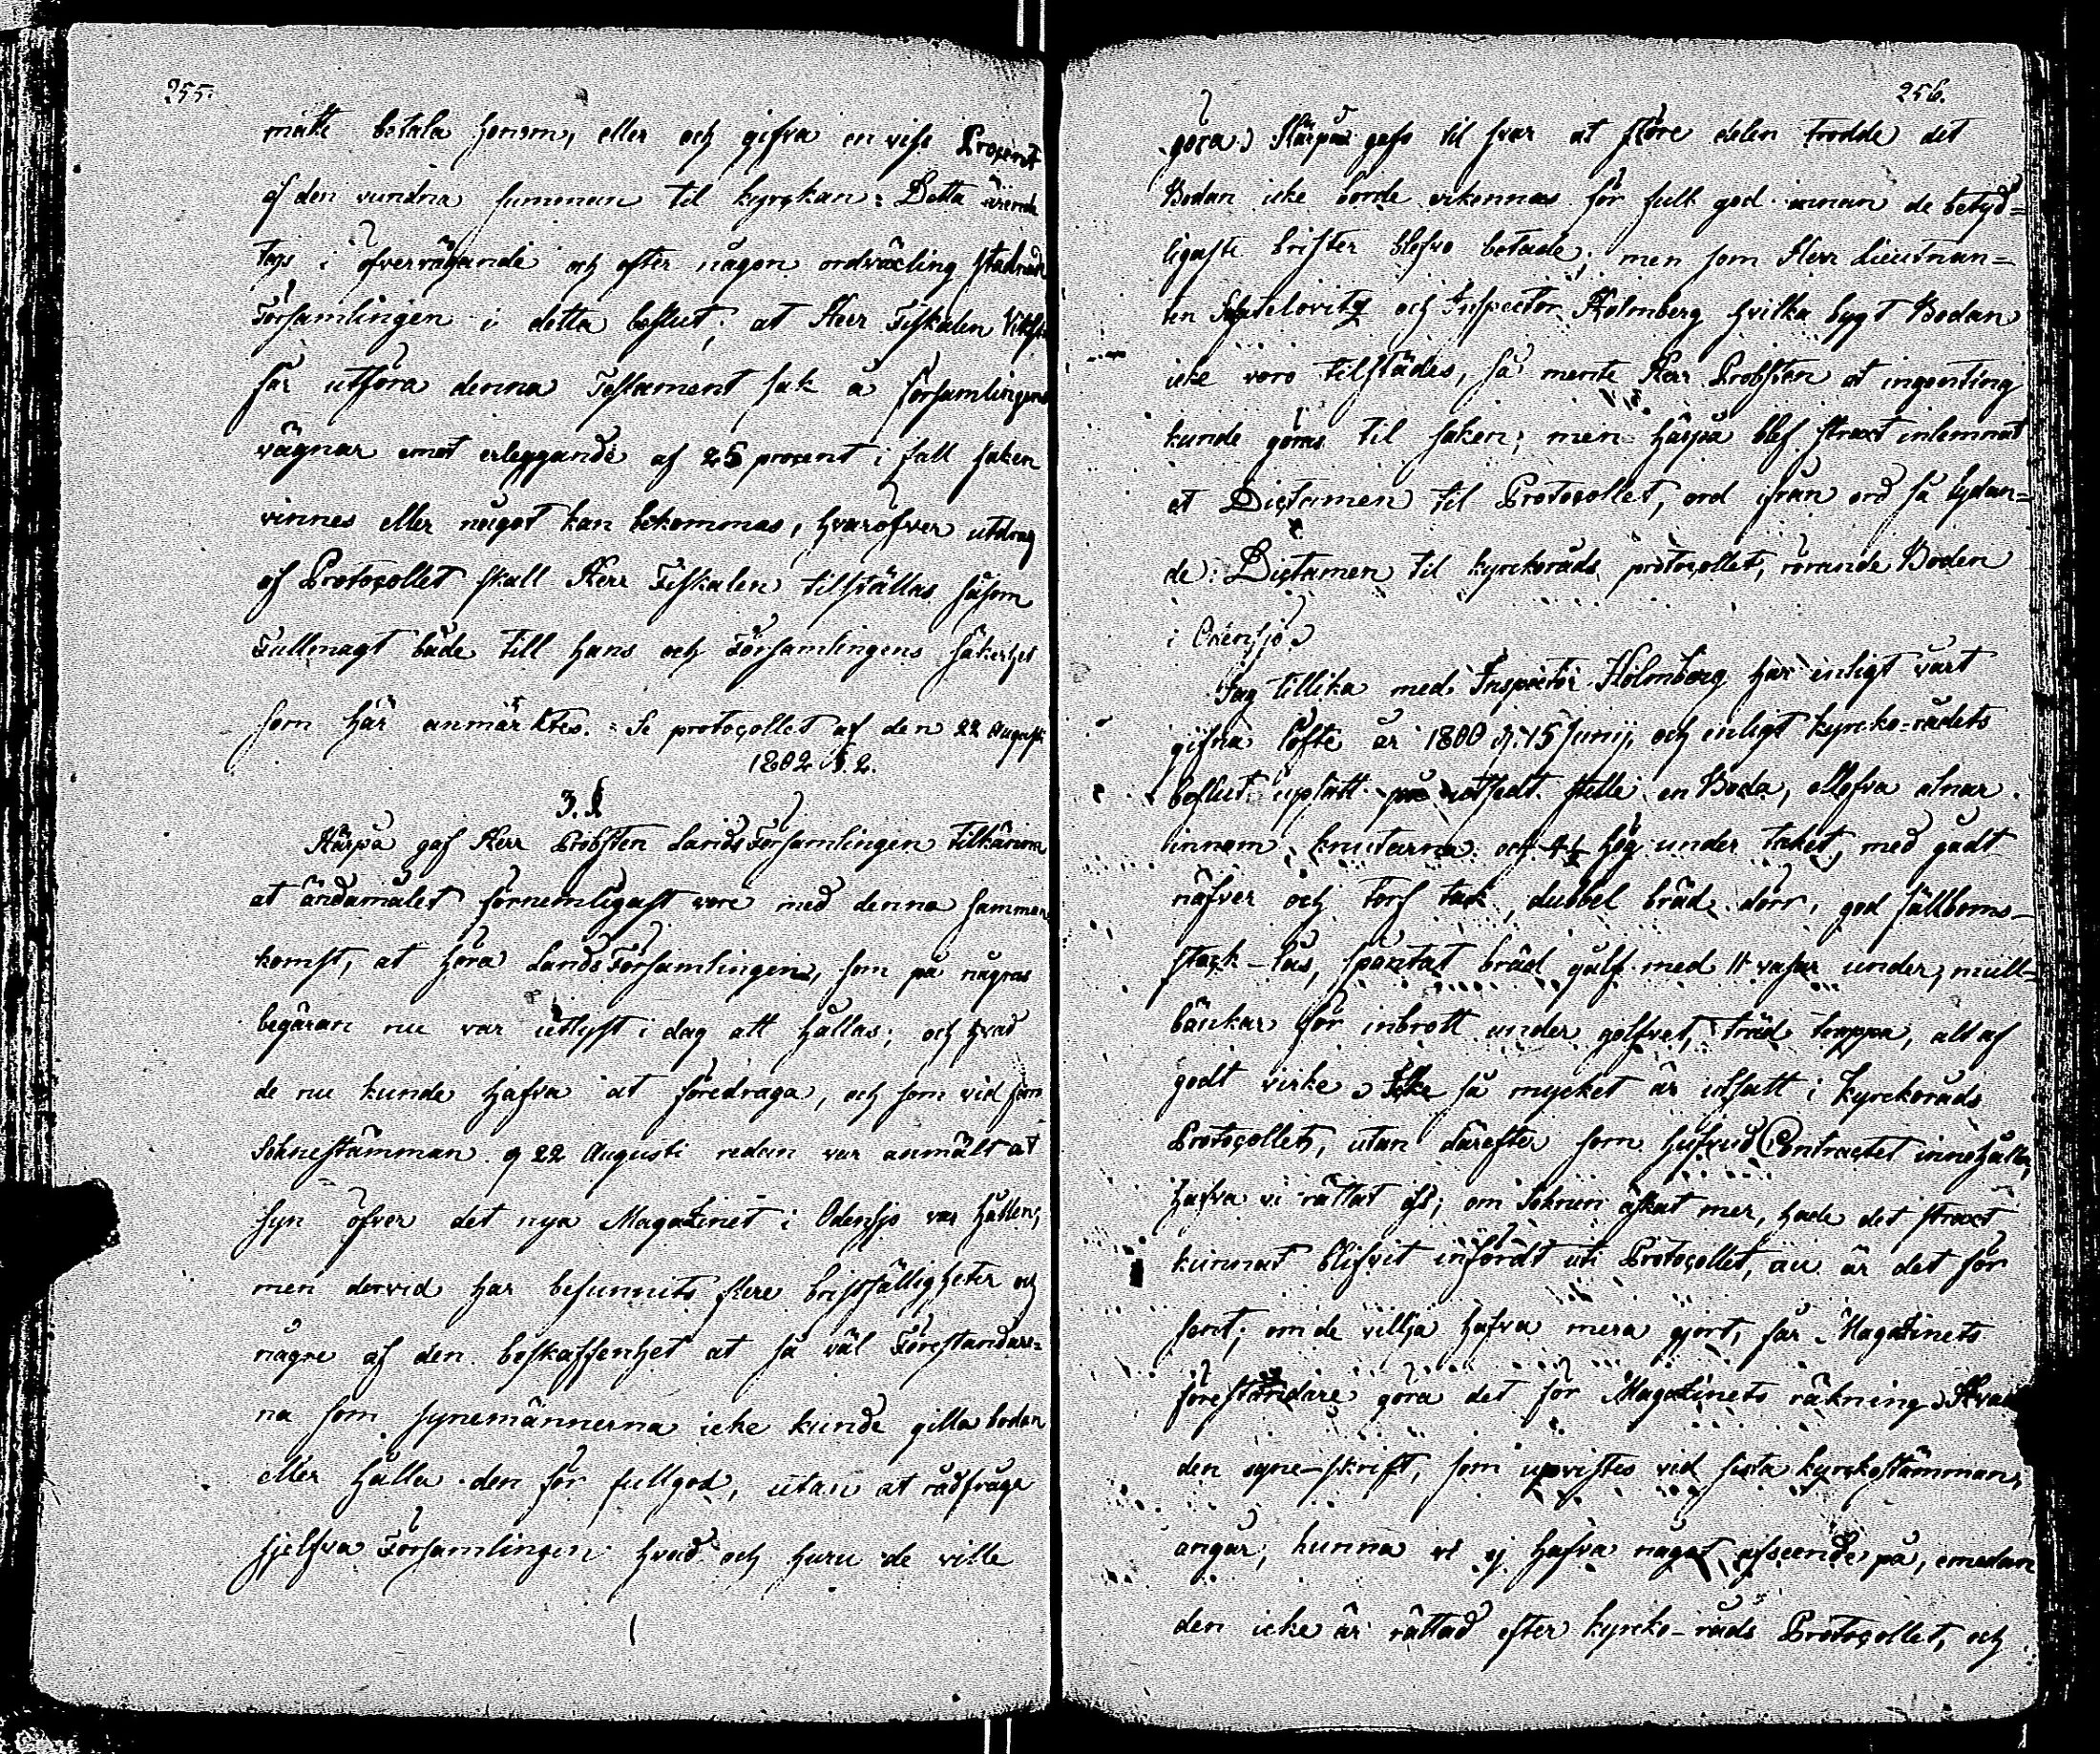 255.
måtte betala honom, eller och gifva en viss Procent
af den vundna summan til kyrckan: Detta ärende
togs i öfvervägande och efter någon ordväxling stadnade
Församlingen i detta beslut, at Herr Fiskalen
får utföra denna Testament sak å församlingens
vägnar emot erläggande af 25 procent i fall saken
vinnes eller något kan bekommas, hvaröfver utdrag
af Protocollet skall Herr Fiskalen tillställas såsom
Fullmagt både till hans och Församlingens säkerhet
som här anmärktes. = Se protocollet af den 22 Augusti
1802 §. 2.
3. §
Härpå gaf Herr Probsten Lands Församlingen tilkänna
at ändamålet förnemligast vore med denna samman-
komst, at höra Lands Församlingen, som på någras
begäran nu var utlyst i dag att hållas; och hvad
de nu kunde hafva at föredraga, och som vid
Sokne stämman d 22 Augusti redan var anmält at
syn öfver det nya Magazinet i Odensjö var hållen;
men dervid har befunnits flere bristfälligheter och
någre af den beskaffenhet at så väl Förestandare-
na som synemännerna icke kunde gilla boden
eller hålla den för fullgod, utan at rådfråga
sjelfva Församlingen hvad och huru de ville
256.
göra. Härpå gafs til svar at större delen trodde det
Bodan icke borde erkennas för full god innan de betyd=
ligaste brister blefvo botade; men som Herr Lieutnan=
ten och Inspector Holmberg hvilka bygt Bodan
icke voro tilstädes, så mente Herr Probsten at ingenting
kunde göras til saken; men härpå blef straxt inlemnat
et Dictamen til Protocollet, ord ifrån ord så lydan=
de: Dictamen til kyrckoråds protocollet, rörande Boden
i Odensjö
Jag tillika med Inspector Holmberg har enligt vårt
gifna löfte år 1800 d. 15 Junij, och enligt kyrcko-rådets
beslut upsatt på utsedt ställe en Boda, ellofva alnar
innom knutarna och 4½ hög under taket, med godt
näfver och torf tak, dubbel bräd dörr, god fällboms-
stock-lås, spontat bräd golf med 11 vasar under, mull-
bänkar för inbrott under golfvet, träd trappa, alt af
godt virke. Icke så mycket är utsatt i Kyrckoråds
Protocollet, utan därefter som hufvud Contractet innehåller,
hafva vi rättat oss; om Soknen äskat mer, hade det straxt
kunnat blifvit infördt uti Protocollet, nu är det för
sent; om de villja hafva mera gjort, får Magazinets
föreståndare göra det för Magazinets räkning. Hvad
den syne-skrift, som upvistes vid sista kyrckostämman,
angår, kunna vi ej hafva något afseende på, emedan
den icke är rättad efter kyrcko-råds Protocollet, och